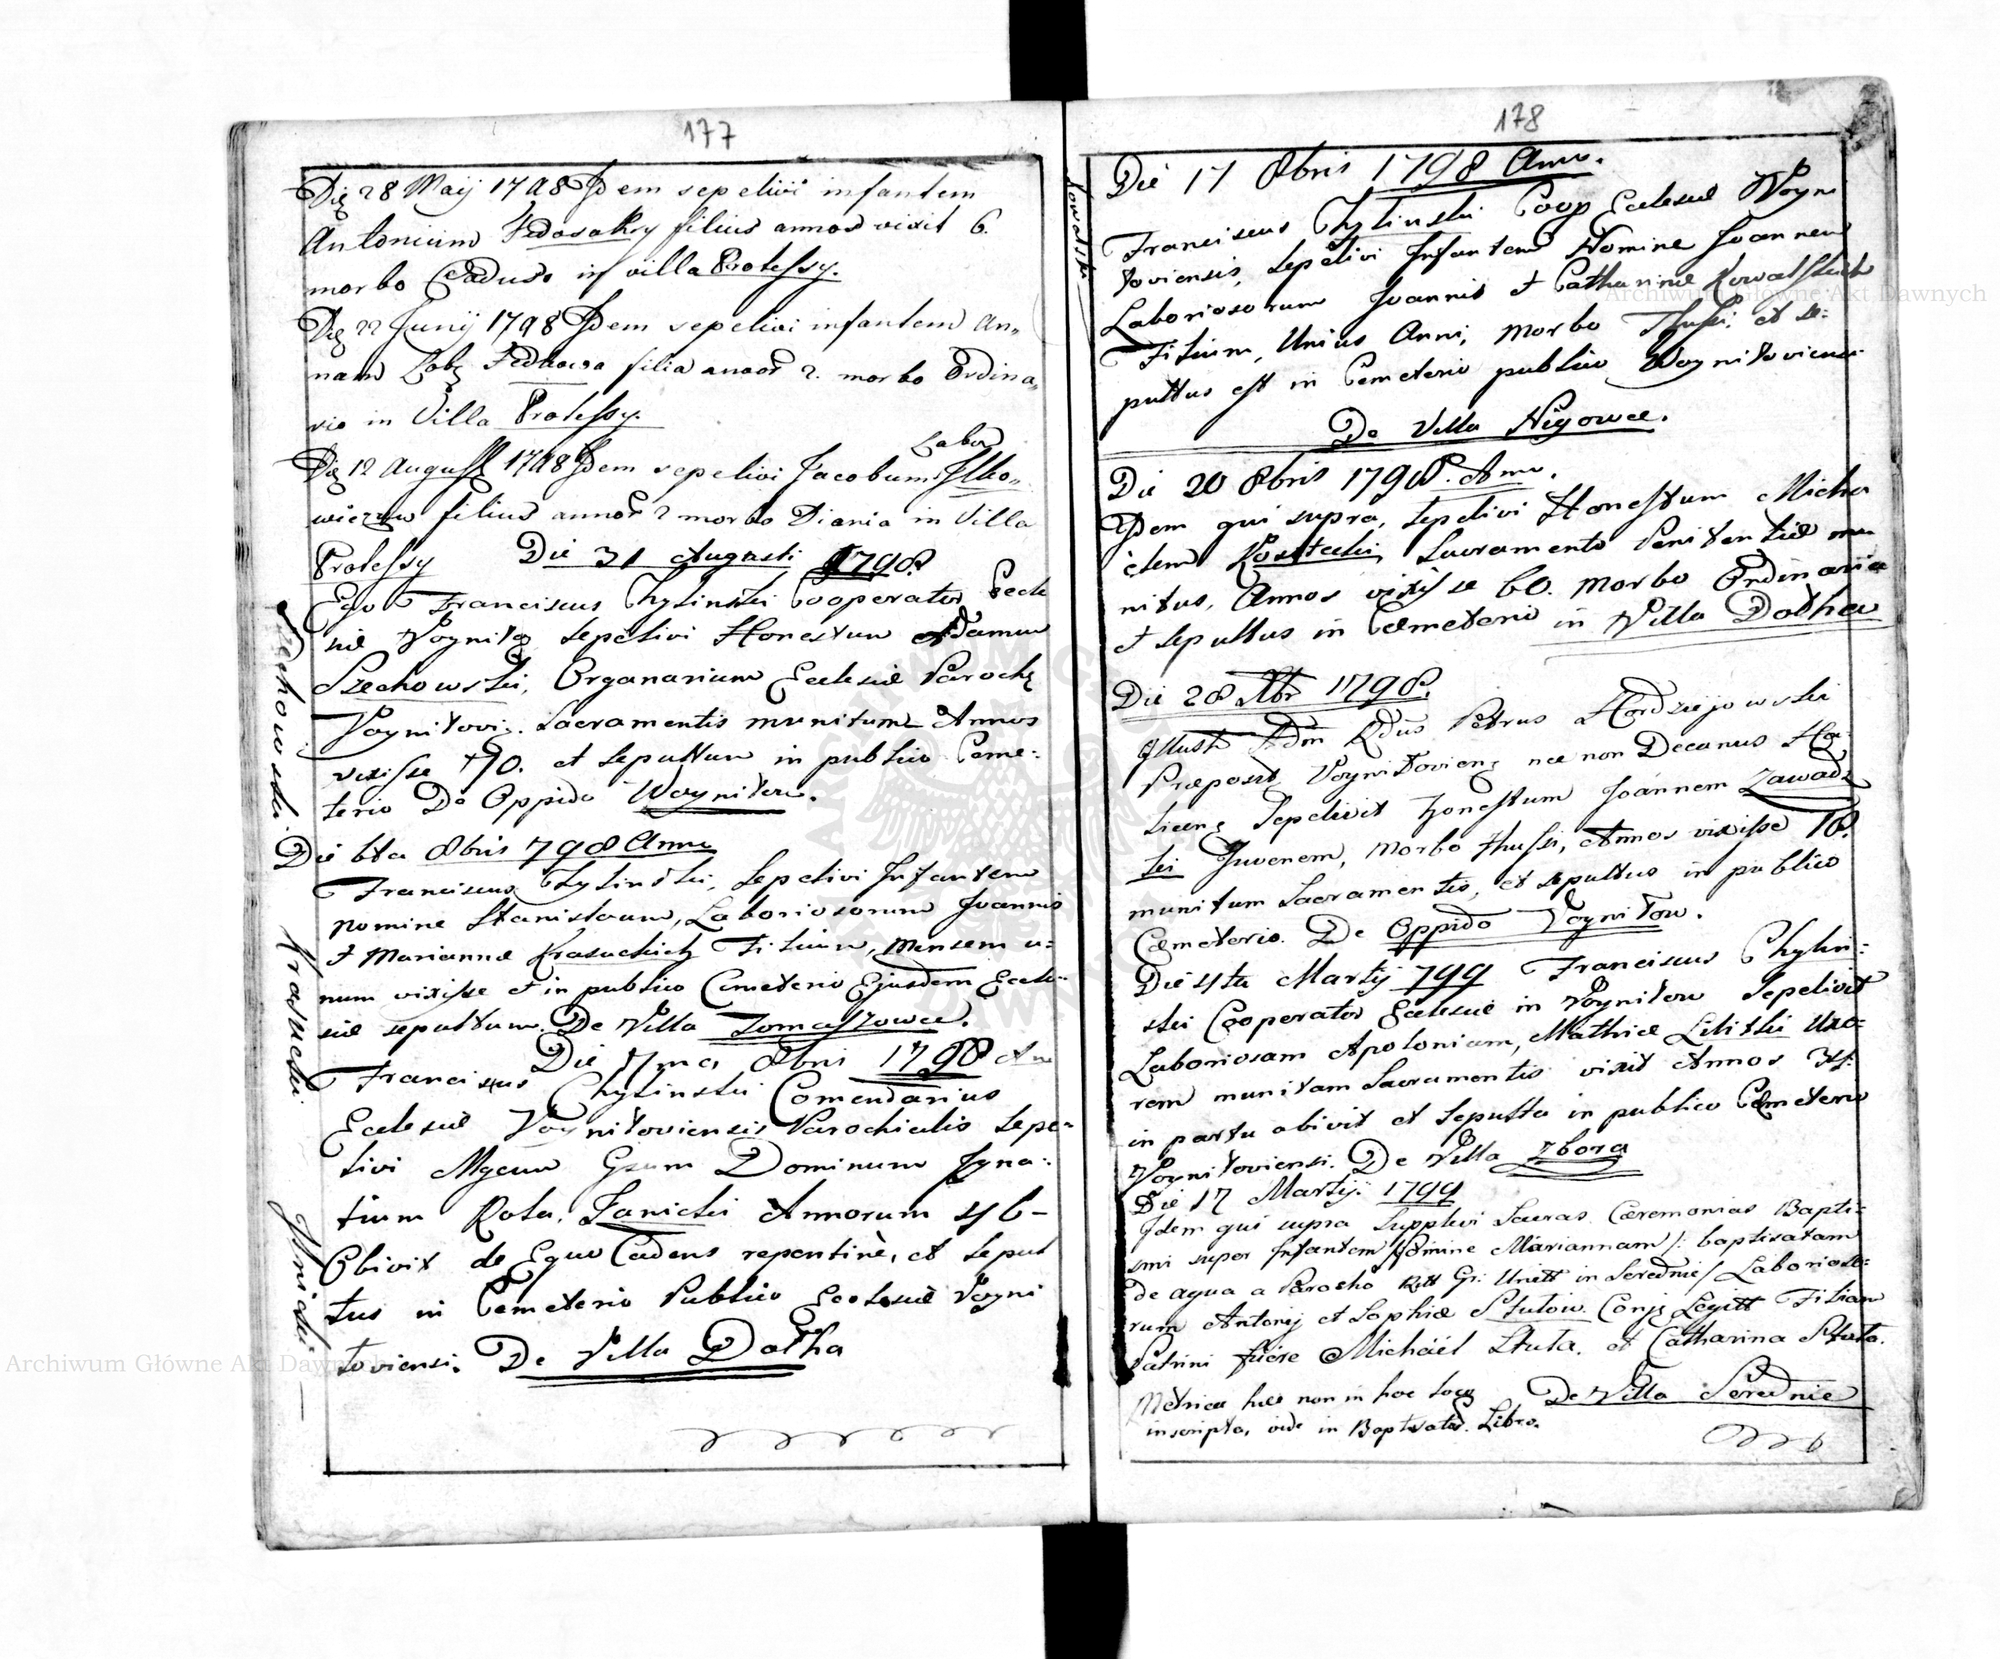 177
Die 28 Maij 1798 Idem sepelivi infantem
Antonium Fedosakry filius annos vixit 6.
morbo Caduso in villa Protessy.
Die 22 Junij 1798 Idem sepelivi infantem An„
nam Fedkowa filia annor 2. morbo Ordina„
rio in Villa Protessy.
Labor
Die 12 August 1798 Idem sepelivi Jacobum Ilko„
wiczuw filius annor 2 morbo Diania in Villa
Protessy Die 31 Augusti 1798
Ego Franciscus Chylinski Cooperator Eccle
siæ Voynitę sepelivi Honestum Adamum
Szechowski, Organarium Ecclesiæ Parochę
Voynitovię. Sacramentis munitum Annos
vixisse 70. et sepultum in publico Ceme:
terio De Oppido Woynitow.
Die 6ta 8bris 798 Anno
Franciscus Chylinski, sepelivi Infantem
nomine Stanislaum, Laboriosorum Joannis
et Mariannæ Krasuckich Filium, Mensem u=
num vixisse et in publico Cemeterio Ejusdem Eccle=
siæ sepultum. De Villa Tomaszowce.
Die 7ma 8bris 1798 Ano
Franciscus Chylinski Comendarius
Eclesiæ Voynitoviensis Parochialis sepe=
livi Mgcum Gsum Dominum Igna:
tium Rola. Janicki Annorum 46-
Obivit de Equo Cadens repentinè, et sepul
tus in Cemeterio Publico Ecclesiæ Voyni
toviensi. De Villa Dołha
Szechowski
Krasucki
Janicki
178
Kowalski
Die 17 8bris 1798 Anno.
Franciscus Chylinski Coop Eclesiæ Woyni
toviensis, sepelivi Infantem Nomine Joannem
Laboriosorum Joannis et Catharinæ Kowalskich
Filium, Unius Anni, morbo Tussi, et se:
pultus est in Cemeterio publico Woynitoviensi
De Villa Niegowce.
Die 20 8bris 1798. Ano.
Idem qui supra, sepelivi Honestum Micha
elem Kositecki, Sacramento Penitentiæ mu
nitus, Annos vixisse 60. morbo Ordinario
et sepultus in Cæmeterio in Villa Dołha
Die 28 Xbr 1798.
Illustr Adm Rdus Petrus Hordziejowski
Præposit Voynitovienę nec non Decanus Ha
licenę Sepelivit honestum Joannem Zawadz
ki Juvenem, morbo thussi, Annos vixisse 18.
munitum Sacramentis, et sepultus in publico
Cæmeterio. De Oppido Voynitow.
Die 4ta Martij 799 Franciscus Chylin=
ski Cooperator Eclesiæ in Voynitow Sepelivit
Laboriosam Apoloniam, Mathiæ Lelitki Uxo=
rem munitam Sacramentis vixit Annos 34.
in partu obivit et sepulta in publico Cæmeterio
Voynitoviensi. De Villa Zbora
Die 17 Martij: 1799
Idem qui supra supplevi Sacras Cæremonias Bapti=
smi super Infantem Nomine Mariannam): baptisatam
de aqua a Parocho Ritt Gr: Unitt in Serednie/ Laborioso=
rum Antonij et Sophiæ Stutow. Conję Legitt Filiam
Patrini fuere Michaël Stuta. et Catharina Stuta.
Metrica hæc non in hoc loco De Villa Serednie
inscripta, vide in Baptisator. Libro.
Archiwum Główne Akt Dawnych
Archiwum Główne Akt Dawnych